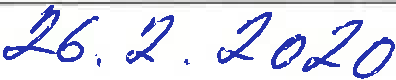 26. 2. 2020